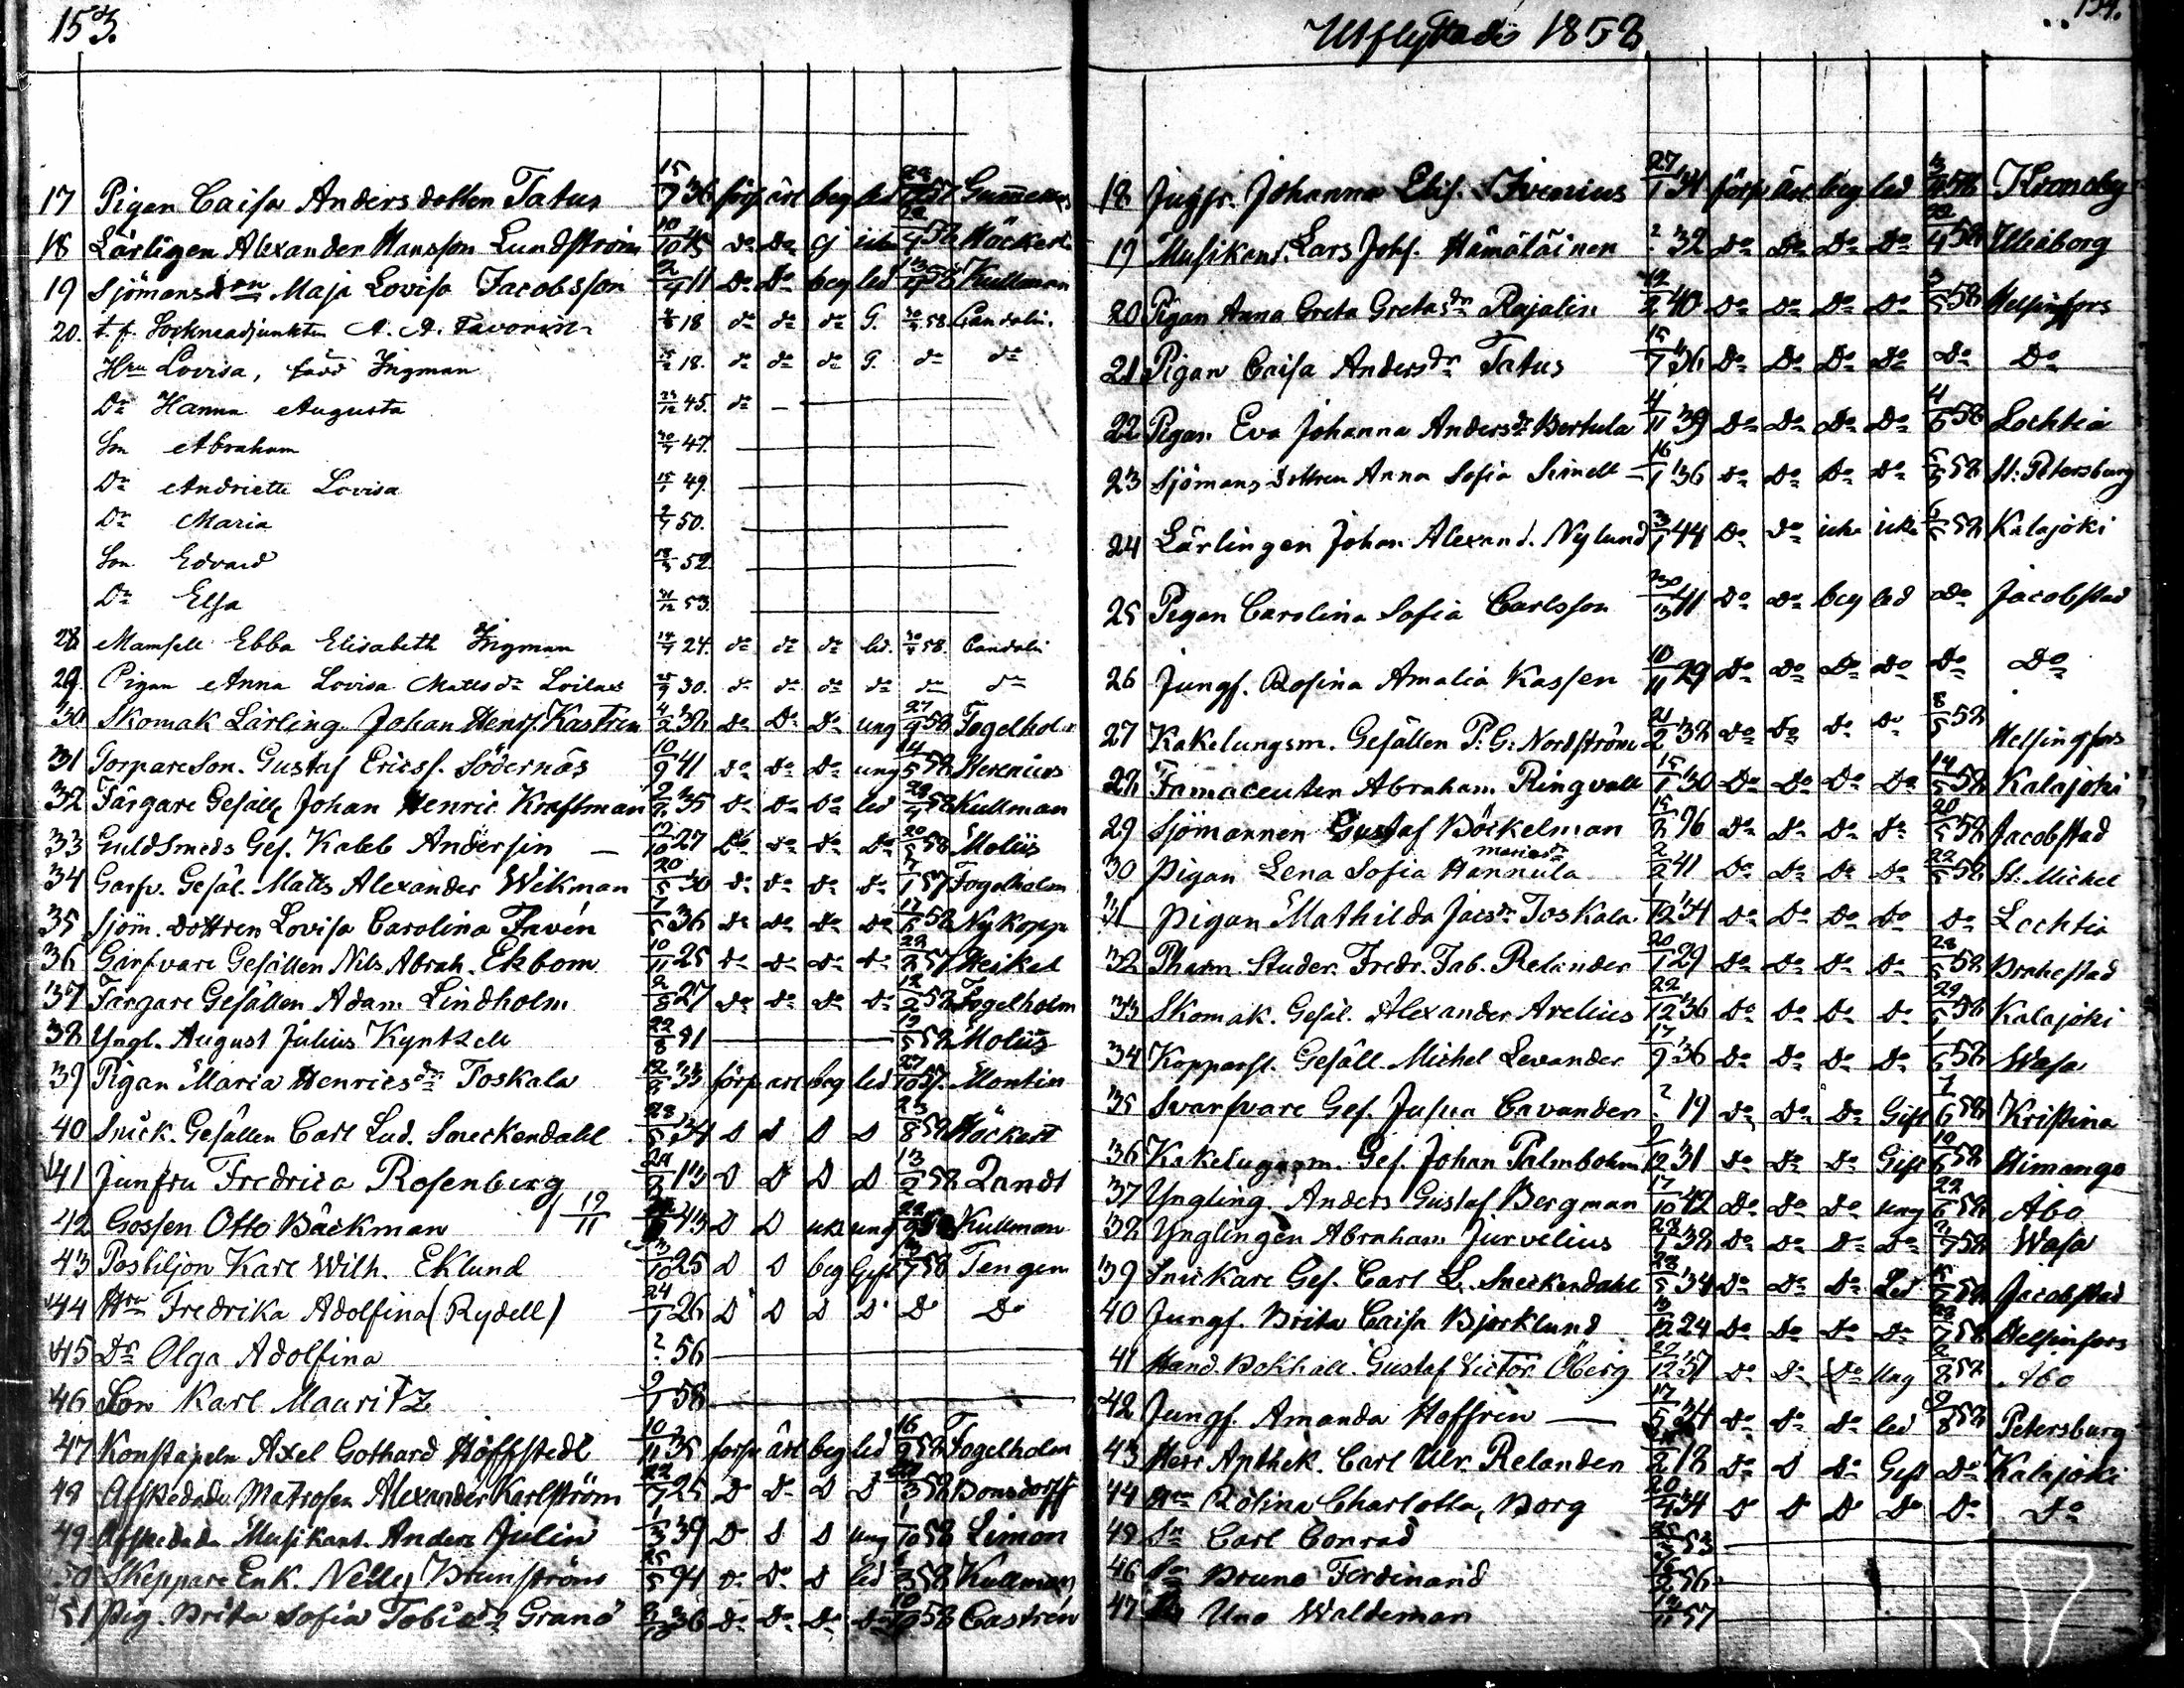 153.
17 Pigan Caisa Andersdotter Tatus 15/7 36 förs ärl beg led 57 Gummerus
18 Lärlingen Alexander Hansson Lundström 10/10 45 Do Do ej 58 Höckert
19 Sjömansdon Maja Lovisa Jacobsson 2/4 11 Do Do beg led 58 Kullman
20. t. f. Sockneadjunkten A. A. Favorin 18 do do do G. 58 Candelin.
Hru Lovisa, född Ingman 18. do do do G. do do
Dr Hanna Augusta 24/12 45. do —
Son Abraham 47.
Dr Andriette Lovisa 49.
Dr Maria 50.
Son Edvard 52
Dr Elsa 31/12 53.
28 Mamsell Ebba Elisabeth Ingman 24. do do do led. 58. Candelin
29. Pigan Anna Lovisa Mattsdr Loilas 25/9 30. do do do do do do
30 Skomak Lärling Johan Henrs. Kastren 4/2 38 Do Do Do ung 27/9 58 Fogelholm
31 Torpare Son. Gustaf Ericss. Södernäs 10/9 41 Do Do Do ung 14/5 58 Herenius
32 Färgare Gesäll Johan Henric Kraftman 35 Do Do Do led 58 Kullman
33 Guldsmeds Ges. Kaleb Andersin — 12/10 27 Do Do Do Do 20/5 58 Molis
34 Garfv. Gesäl. Matts Alexander Wikman 20/5 30 Do Do Do Do 57 Fogelholm
35 Sjöm. dottren Lovisa Carolina Favén 36 Do Do Do Do 58 Nykopp
36 Garfvare Gesällen Nils Abrah. Ekbom 10/11 25 Do Do Do Do 57 Heikel
37 Färgare Gesällen Adam Lindholm 2/8 27 Do Do Do Do 12/2 58 Fogelholm
38 Yngl. August Julius Kyntzell 22/8 41 58 Molis
39 Pigan Maria Henricsdr Toskala 33 förs ärl beg led 27/10 57. Montin
40 Snick. Gesällen Carl Lud. Sneckendahl 28/5 34 D D D D 23/8 58 Höckert
41 Junfru Fredrica Rosenberg 13 D D D D 13/2 58 Zandt
42 Gossen Otto Bäckman 19/11 43 D D ung 58 Kullman
43 Postiljon Karl Wilh. Eklund 3/10 25 D D beg Gift 58 Tengen
44 Hru Fredrika Adolfina (Rydell) 24/1 26 D D D D Do Do
45 Dr Olga Adolfina ? 56
46 Son Karl Mauritz 9/1 58
47 Konstapeln Axel Gothard Höffstedt 10/11 35 förs ärl beg led 16/9 58 Fogelholm
48 Afskedade Matrosen Alexander Karlström 25 D D D D 58 Bonsdorff
49 Afskedade Musikant. Anders Julin 1/3 39 D D D ung 1/10 58 Limon
50 Skeppare Enk. Nelly Brunström 25/5 94 Do Do D led 58 Kullman
51 Pig. Brita Sofia Tobiasdr Granö 36 Do Do Do Do 58 Castrén
Utflyttade 1858
154.
18 Jugfr. Johanna Elis. Ivenius 27/1 34 förs ärl beg led 58 Kronoby
19 Musikant. Lars Johs. Hämäläinen ? 32 Do Do Do Do 58 Uleåborg
20 Pigan Anna Greta Gretasdr Rajalin 12/2 40 Do Do Do Do 3/5 58 Helsingfors
21 Pigan Caisa Andersdr Tatus 15/7 36 Do Do Do Do Do Do
22 Pigan Eva Johanna Andersdr Bertula 4/11 39 Do Do Do Do 4/5 58 Lochteå
23 Sjömans dottren Anna Sofia Simell — 16/1 36 Do Do Do Do 58 St: Petersburg
24 Lärlingen Johan Alexand. Nylund 3/1 44 Do Do icke icke 58 Kalajoki
25 Pigan Carolina Sofia Carlsson 41 Do Do beg led Do Jacobstad
26 Jungf. Rosina Amalia Kassen 10/11 29 Do Do Do Do Do Do
27 Kakelungsm. Gesällen P. G. Nordström 21/2 32 Do Do Do Do 8/5 58 Helsingfors
28 Famaceuten Abraham Ringvall 15/1 30 Do Do Do Do 14/5 58 Kalajoki
29 Sjömannen Gustaf Böckelman 96 Do Do Do Do 20/5 58 Jacobstad
30 Pigan Lena Sofia Mariasdr Hannula 2/2 41 Do Do Do Do 22/5 58 St. Michel
31 Pigan Mathilda Jacsdr Toskala 1/12 34 Do Do Do Do Do Lochteå
32 Pharm. Studer. Fredr. Fab. Relander 20/1 29 Do Do Do Do 28/5 58 Brahestad
33 Skomak. Gesäl. Alexander Arelius 22/12 36 Do Do Do Do 58 Kalajoki
34 Kopparsl. Gesäll Michel Levander 17/9 36 Do Do Do Do 1/6 58 Wasa
35 Svarfvare Ges. Cavander ? 19 Do Do Do Gift 58 Kristina
36 Kakelugnsm. Ges. Johan Palmbohm 9/12 31 Do Do Do Gift 10/6 58 Himango
37 Yngling Anders Gustaf Bergman 17/10 42 Do Do Do ung 22/6 58 Åbo
38 Ynglingen Abraham Jurvelius 38 Do Do Do Do 58 Wasa
39 Snickare Ges. Carl L. Sneckendahl 28/5 34 Do Do Do Led 58 Jacobstad
40 Jungf. Brita Caisa Bjorklund 24 Do Do Do Do 58 Helsinfors
41 Hand. Bokhåll. Gustaf Victor Öberg 27/12 37 Do Do Do ung 58 Åbo
42 Jungf. Amanda Hoffrén — 17/5 34 Do Do Do led 9/8 58 Petersburg
43 Herr Apthek. Carl Ulr. Relander 18 Do D Do Gift Do Kalajoki
44 Hru Rosina Charlotta, Borg 34 D D D D Do Do
45 Sn Carl Conrad 53
46 Bruno Ferdinand 56
47 Uno Waldeman 57